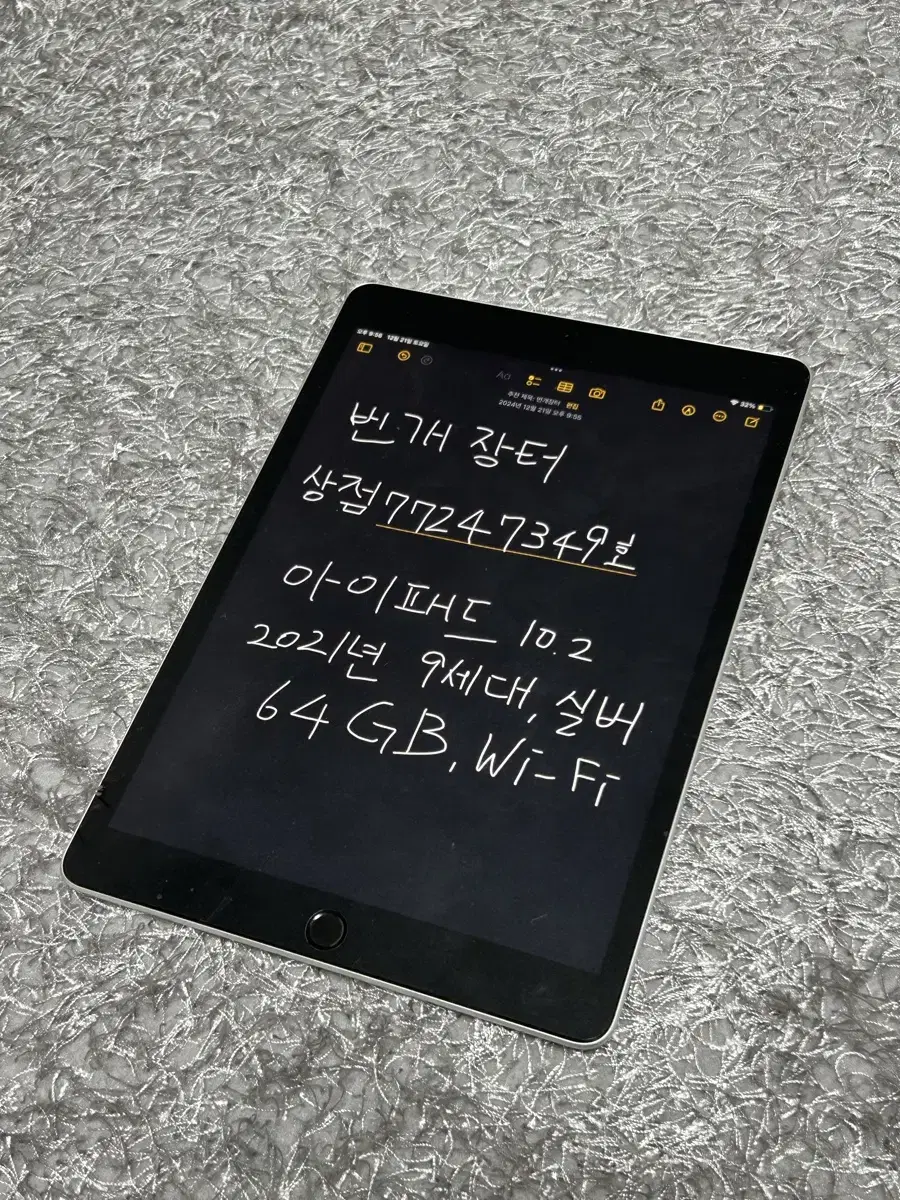 오후 9:56 12월 21일 토요일
32%
Aa
추천 제목: 번개장터 편집
2024년 12월 21일 오후 9:55
번개 장터
상점 77247349호
아이패드 10.2
2021년 9세대, 실버
64GB, Wi-Fi